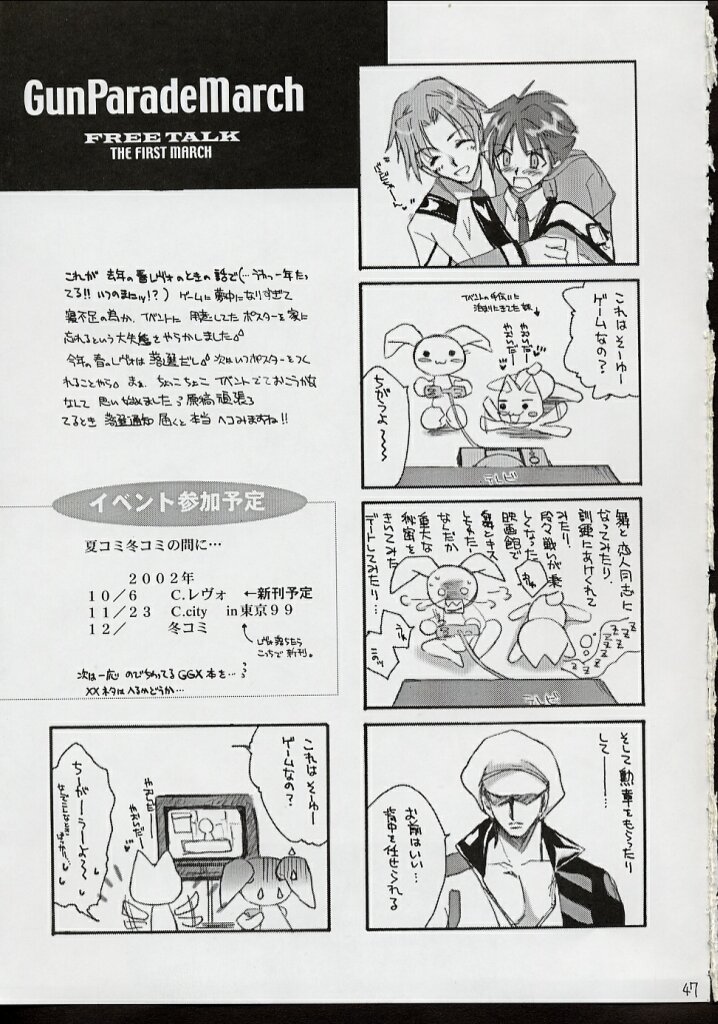 GunParadeMarch
FREE TALK
THE FIRST MARCH
これはそーゆー
ゲームなの?
ちがうよ〜〜
テレビ
舞と恋人同志に
なってみたり、
訓練にあけくれて
みたり、
段々戦いが楽
しくなったり
映画館で
舞とキス
しちゃたり
なんだか
重大な
秘密を
きいてみたり
デートしてみたり…
テレビ
そして勲章をもらったり
して―――
お前はいい…
背中を任せられる
これはそーゆー
ゲームなの?
ちーがーうーよ〜〜
これが 去年の春レヴォのときの話で(…うわっ一年たっ
てる!!いつのまにッ!?) ゲームに夢中になりすぎて
寝不足の為か、イベントに 用意してたポスターを家に
忘れるという大失態をやらかしました。
今年の春のレヴォは落選だし。次はいつポスターをつく
れることやら。まぁ、ちょこちょこ イベントでておこうかな
なんて 思い始めました。原稿頑張っ
てるとき 落選通知 届くと本当 ヘコみますね!!
イベント参加予定
夏コミ冬コミの間に…
2002年
10/6 C.レヴォ ←新刊予定
11/23 C.city in東京99
12/ 冬コミ
レヴォ落ちたら
こっちで新刊。
次は一応 のびちゃってるGGX本を…
XXネタは入るかどうか…
47